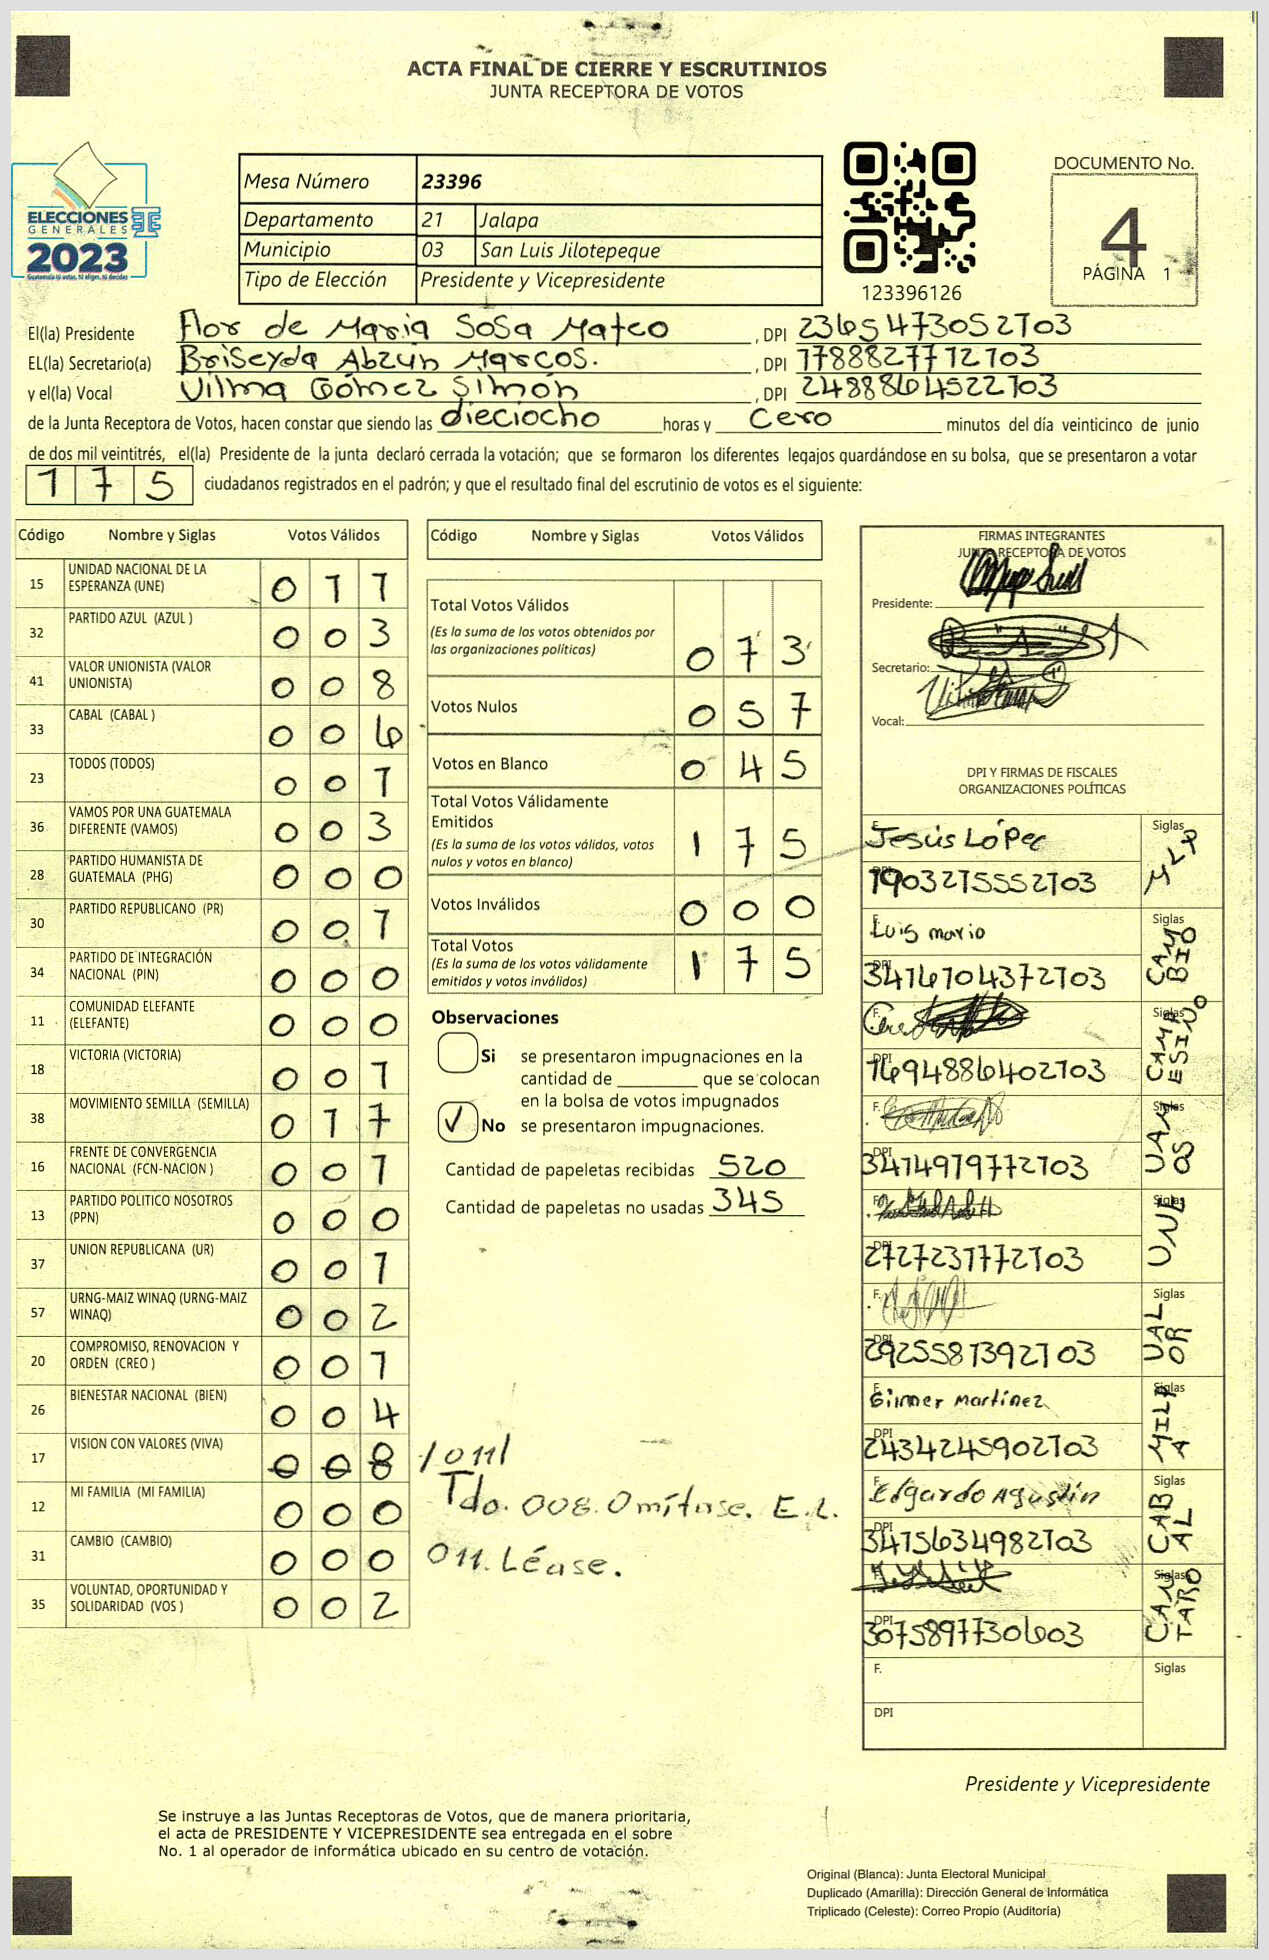 ACTA FINAL DE CIERRE Y ESCRUTINIOS
JUNTA RECEPTORA DE VOTOS
ELECCIONES
GENERALES
2023
Mesa Número 23396
Departamento 21 Jalapa
Municipio 03 San Luis Jilotepeque
Tipo de Elección Presidente y Vicepresidente
123396126
DOCUMENTO No.
4
PÁGINA 1
El(la) Presidente Flor de Maria Sosa Mateo , DPI 2365473052103
EL(la) Secretario(a) Briseyda Abzún Marcos. , DPI 1788827712103
y el(la) Vocal Vilma Gómez Simón , DPI 2488864522103
de la Junta Receptora de Votos, hacen constar que siendo las dieciocho horas y cero minutos del día veinticinco de junio
de dos mil veintitrés, el(la) Presidente de la junta declaró cerrada la votación; que se formaron los diferentes legajos guardándose en su bolsa, que se presentaron a votar
175 ciudadanos registrados en el padrón; y que el resultado final del escrutinio de votos es el siguiente:
Código Nombre y Siglas Votos Válidos
15 UNIDAD NACIONAL DE LA ESPERANZA (UNE) 011
32 PARTIDO AZUL (AZUL ) 003
41 VALOR UNIONISTA (VALOR UNIONISTA) 008
33 CABAL (CABAL ) 006
23 TODOS (TODOS) 001
36 VAMOS POR UNA GUATEMALA DIFERENTE (VAMOS) 003
28 PARTIDO HUMANISTA DE GUATEMALA (PHG) 000
30 PARTIDO REPUBLICANO (PR) 001
34 PARTIDO DE INTEGRACIÓN NACIONAL (PIN) 000
11 COMUNIDAD ELEFANTE (ELEFANTE) 000
18 VICTORIA (VICTORIA) 001
38 MOVIMIENTO SEMILLA (SEMILLA) 017
16 FRENTE DE CONVERGENCIA NACIONAL (FCN-NACION ) 001
13 PARTIDO POLITICO NOSOTROS (PPN) 000
37 UNION REPUBLICANA (UR) 001
57 URNG-MAIZ WINAQ (URNG-MAIZ WINAQ) 002
20 COMPROMISO, RENOVACION Y ORDEN (CREO ) 001
26 BIENESTAR NACIONAL (BIEN) 004
17 VISION CON VALORES (VIVA) 008 /011/
12 MI FAMILIA (MI FAMILIA) 000
31 CAMBIO (CAMBIO) 000
35 VOLUNTAD, OPORTUNIDAD Y SOLIDARIDAD (VOS ) 002
Tdo. 008. Omítase. E.L.
011. Léase.
Código Nombre y Siglas Votos Válidos
Total Votos Válidos 073
(Es la suma de los votos obtenidos por
las organizaciones políticas)
Votos Nulos 057
Votos en Blanco 045
Total Votos Válidamente
Emitidos 175
(Es la suma de los votos válidos, votos
nulos y votos en blanco)
Votos Inválidos 000
Total Votos 175
(Es la suma de los votos válidamente
emitidos y votos inválidos)
Observaciones
Si se presentaron impugnaciones en la
cantidad de ________ que se colocan
en la bolsa de votos impugnados
✓ No se presentaron impugnaciones.
Cantidad de papeletas recibidas 520
Cantidad de papeletas no usadas 345
FIRMAS INTEGRANTES
JUNTA RECEPTORA DE VOTOS
Presidente:
Secretario:
Vocal:
DPI Y FIRMAS DE FISCALES
ORGANIZACIONES POLÍTICAS
F. Jesús López Siglas MLP
DPI 1903215552103
F. Luis mario Siglas CAMBIO
DPI 3416704372103
F. Siglas CAMPESINO
DPI 1694886402103
F. Siglas VAMOS
DPI 3414979772103
F. Siglas UNE
DPI 2727231772103
F. Siglas VALOR
DPI 2925581392103
F. Gilmer Martínez Siglas MILPA
DPI 2434245902103
F. Edgardo Agustín Siglas CABAL
DPI 3415634982103
F. Siglas CANTARO
DPI 3075897730603
F. Siglas
DPI
Presidente y Vicepresidente
Se instruye a las Juntas Receptoras de Votos, que de manera prioritaria,
el acta de PRESIDENTE Y VICEPRESIDENTE sea entregada en el sobre
No. 1 al operador de informática ubicado en su centro de votación.
Original (Blanca): Junta Electoral Municipal
Duplicado (Amarilla): Dirección General de Informática
Triplicado (Celeste): Correo Propio (Auditoría)